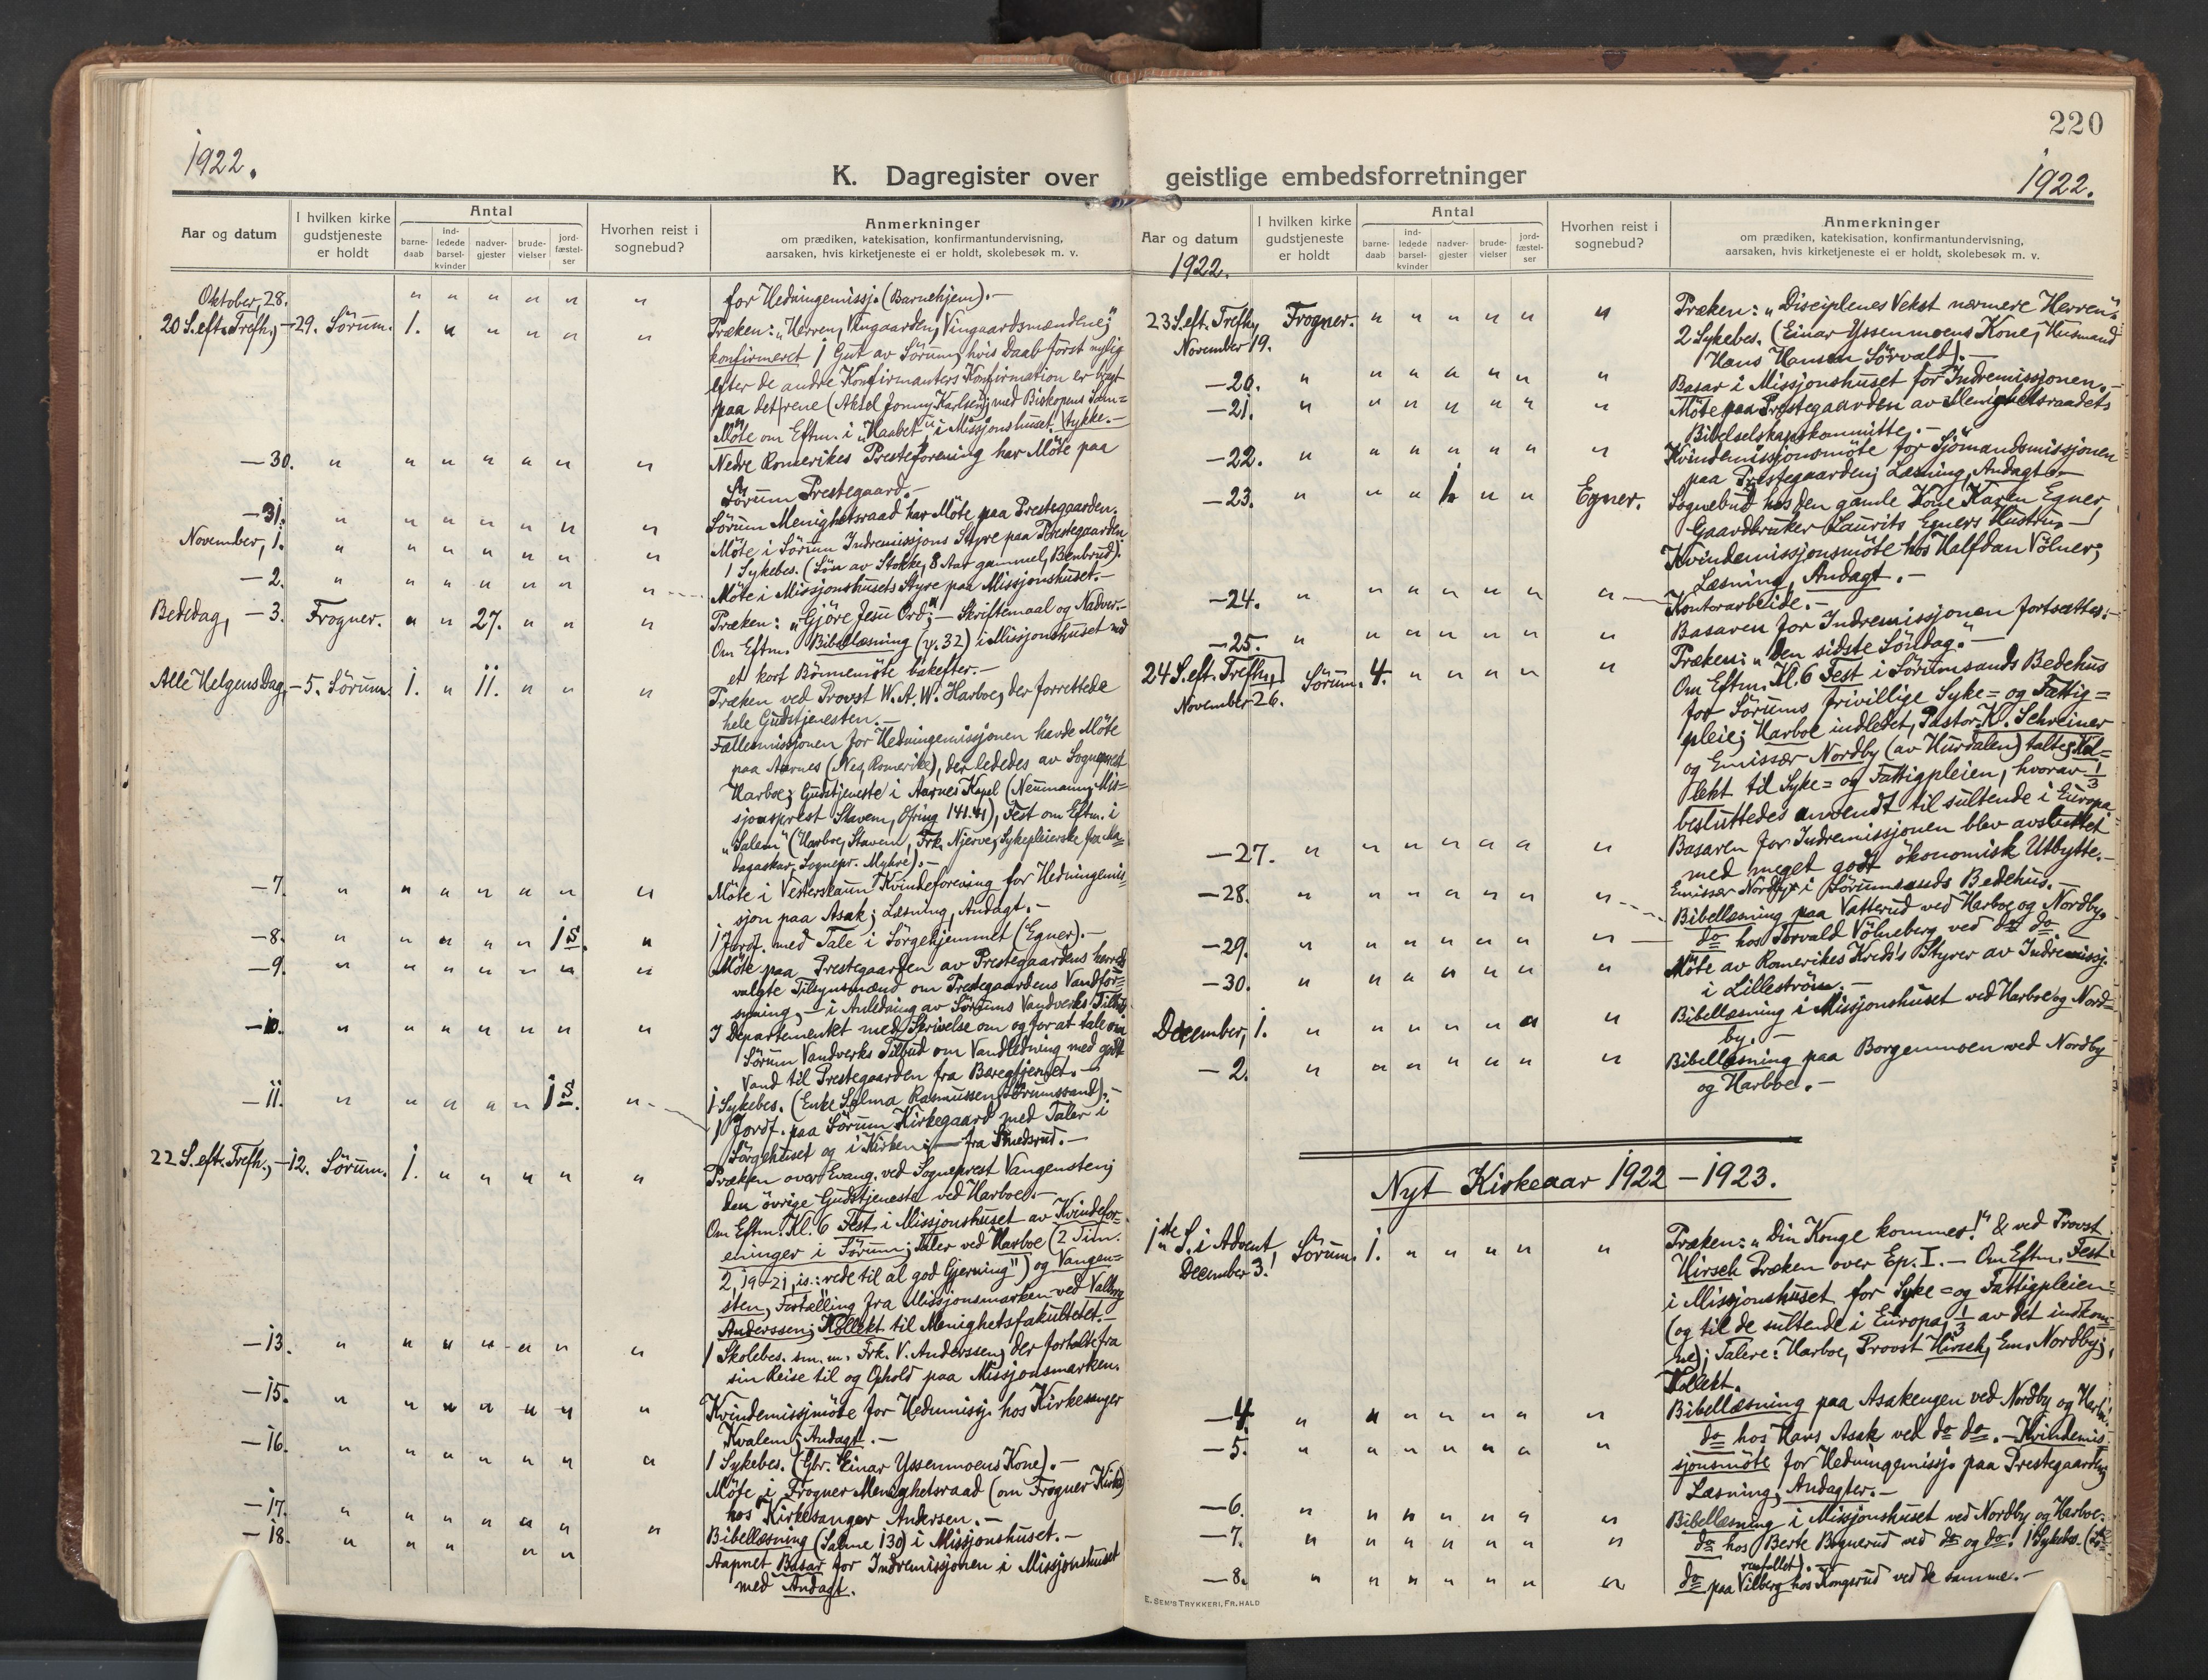 220
1922.
1922.
K. Dagregister over geistlige embedsforretninger
Aar og datum
I hvilken kirke gudstjeneste er holdt
Antal
barnedaab
indledede barselkvinder
nadvergjester
brudevielser
jordfæstelser
Hvorhen reist i sognebud?
Anmerkninger
om prædiken, katekisation, konfirmantundervisning,
aarsaken, hvis kirketjeneste ei er holdt, skolebesøk m. v.
Oktober, 28. " " " " " " for Hedningemissj. (Barnehjem).—
20 S. eft. Trefh., —29. Sörum. 1. " " " " " Præken: „Herren, Vingaarden, Vingaardsmændene;"
konfirmeret 1 Gut av Sörum, hvis Daab först nylig
efter de andre Konfirmanters Konfirmation er bragt
paa det rene (Aksel Jonny Karlsen) med Biskopens Sam=
Möte om Eftm. i „Haabet" i Missjonshuset. tykke.—
—30. " " " " " " " Nedre Romerikes Presteforening har Möte paa
Sörum Prestegaard.—
—31. " " " " " " " Sörum Menighetsraad har Möte paa Prestegaarden.
November, 1. " " " " " " " Möte i Sörum Indremissjons Styre paa Prestegaarden
1 Sykebes. (Sön av Stokke, 8 Aar gammel, Benbrud).
—2. " " " " " " " Möte i Missjonshusets Styre paa Missjonshuset.—
Bededag, —3. Frogner. " " 27. " " " Præken: „Gjöre Jesu Ord;"— Skriftemaal og Nadver.—
Om Eftm. Bibellæsning (y. 32) i Missjonshuset med
et kort Bönnemöte bakefter.—
Alle Helgens Dag, —5. Sörum. 1. " 11. " " " Præken ved Provst W. A. W. Harboe, der forrettede
hele Gudstjenesten.—
Fællesmissjonen for Hedningemissjonen havde Möte
paa Aarnes (Nes, Romerike), der lededes av Sogneprest
Harboe; Gudstjeneste i Aarnes Kapel (Neumann, Mis=
sjonsprest Stavem, Ofring 141.41), Fest om Eftm. i
„Salem" (Harboe, Stavem, Frk. Njerve, Sykepleierske fra Ma=
dagaskar, Sognepr. Myhre).—
—7. " " " " " " " Möte i Vesterskaun Kvindeforening for Hedningemis=
sjon paa Asak; Læsning, Andagt.—
—8. " " " " " 1 S. " 1 Jordf. med Tale i Sörgehjemmet (Egner).—
—9. " " " " " " " Möte paa Prestegaarden av Prestegaardens herreds
valgte Tilsynsmænd om Prestegaardens Vandfor=
syning,— i Anledning av Sörums Vandverks Tilbud.
—10. " " " " " " " I Departementet med Skrivelse om og for at tale om
Sörum Vandverks Tilbud om Vandledning med godt
Vand til Prestegaarden fra Baregtjernet.—
—11. " " " " " 1 S. " 1 Sykebes. (Enke Selma Rasmussen, Sörumssand).—
1 Jordf. paa Sörum Kirkegaard med Taler i
Sörgehuset og i Kirken;— fra Smedsrud.—
22 S. eft. Trefh., —12. Sörum. 1. " " " " " Præken over Evang. ved Sogneprest Vangensten;
den övrige Gudstjeneste ved Harboe.—
Om Eftm. Kl. 6 Fest i Missjonshuset av Kvindefor=
eninger i Sörum; Taler ved Harboe (2 Tim.
2, 19–21, is.: rede til al god Gjerning") og Vangen=
sten, Fortælling fra Missjonsmarken ved Valborg
Anderssen; Kollekt til Menighetsfakultetet.—
—13. " " " " " " " 1 Skolebes. sm. m. Frk. V. Anderssen, der fortalte fra
sin Reise til og Ophold paa Missjonsmarken.
—15. " " " " " " " Kvindemissjmöte for Hednmissj. hos Kirkesanger
Kvalem; Andagt.—
—16. " " " " " " " 1 Sykebes. (Gbr. Einar Yssenmoens Kone).—
Möte i Frogner Menighetsraad (om Frogner Kirke)
hos Kirkesanger Andersen.—
—17. " " " " " " " Bibellæsning (Salme 130) i Missjonshuset.—
—18. " " " " " Aapnet Basar for Indremissjonen i Missjonshuset
med Andagt.
Aar og datum
1922.
I hvilken kirke gudstjeneste er holdt
Antal
barnedaab
indledede barselkvinder
nadvergjester
brudevielser
jordfæstelser
Hvorhen reist i sognebud?
Anmerkninger
om prædiken, katekisation, konfirmantundervisning,
aarsaken, hvis kirketjeneste ei er holdt, skolebesøk m. v.
23 S. eft. Trefh, November 19. Frogner. " " " " " " Præken: „Disciplenes Vekst nærmere Herren".
2 Sykebes. (Einar Yssenmoens Kone, Husmand
Hans Hansen Sörvald).—
—20. " " " " " " " Basar i Missjonshuset for Indremissjonen.—
—21. " " " " " " " Möte paa Prestegaarden av Menighetsraadets
Bibelselskapskommitte.—
—22. " " " " " " " Kvindemissjonsmöte for Sjömandsmissjonen
paa Prestegaarden; Læsning, Andagt.—
—23. " " " 1. " " Egner. Sognebud hos den gamle Kone Karen Egner,
Gaardbruker Laurits Egners Hustru.—
Kvindemissjonsmöte hos Halfdan Völner;
Læsning, Andagt.—
—24. " " " " " " " Kontorarbeide.—
Basaren for Indremissjonen fortsættes.—
—25. "
24 S. eft. Trefh., November 26. Sörum. 4. " " " " " Præken: „Den sidste Söndag."—
Om Eftm. Kl. 6 Fest i Sörumsands Bedehus
for Sörums frivillige Syke= og Fattig=
pleie; Harboe indledet, Pastor K. Schreiner
og Emissær Nordby (av Hurdalen) talte; Kol=
lekt til Syke= og Fattigpleien, hvorav 1/3
besluttedes anvendt til sultende i Europa.
—27. " " " " " " " Basaren for Indremissjonen blev avsluttet
med meget godt ökonomisk Utbytte.—
—28. " " " " " " " Emissær Nordby i Sörumsands Bedehus.—
Bibellæsning paa Vatterud ved Harboe og Nordby.
—29. " " " " " " " do hos Torvald Völneberg ved do do.
—30. " " " " " " " Möte av Romerikes Kreds's Styrer av Indremissj.
i Lilleström.—
December, 1. " " " " " " " Bibellæsning i Missjonshuset ved Harboe og Nord=
by.—
—2. " " " " " " " Bibellæsning paa Borgenmoen ved Nordby
og Harboe.—
Nyt Kirkeaar 1922 – 1923.
1ste S. i Advent, December 3. Sörum. 1. " " " " " Præken: „Din Konge kommer!" & ved Provst
Hirsch Præken over Ep. I.— Om Eftm. Fest
i Missjonshuset for Syke= og Fattigpleien
(og til de sultende i Europa, 1/3 av det indkom=
ne); Talere: Harboe, Provst Hirsch, Em. Nordby;
Kollekt.
—4. " " " " " " " Bibellæsning paa Asakengen ved Nordby og Harb.
—5. " " " " " " " do hos Hans Asak ved do do.—Kvindemis=
sjonsmöte for Hedningemissj. paa Prestegaarden
Læsning; Andagter.—
—6. " " " " " " " Bibellæsning i Missjonshuset ved Nordby og Harboe.
—7. " " " " " " " do hos Berte Bognerud ved do og do. 1 Sykebes.
—8. " " " " " " " do paa Vilberg hos Kongsrud ved de samme.—
E. SEM'S TRYKKERI, FR.HALD